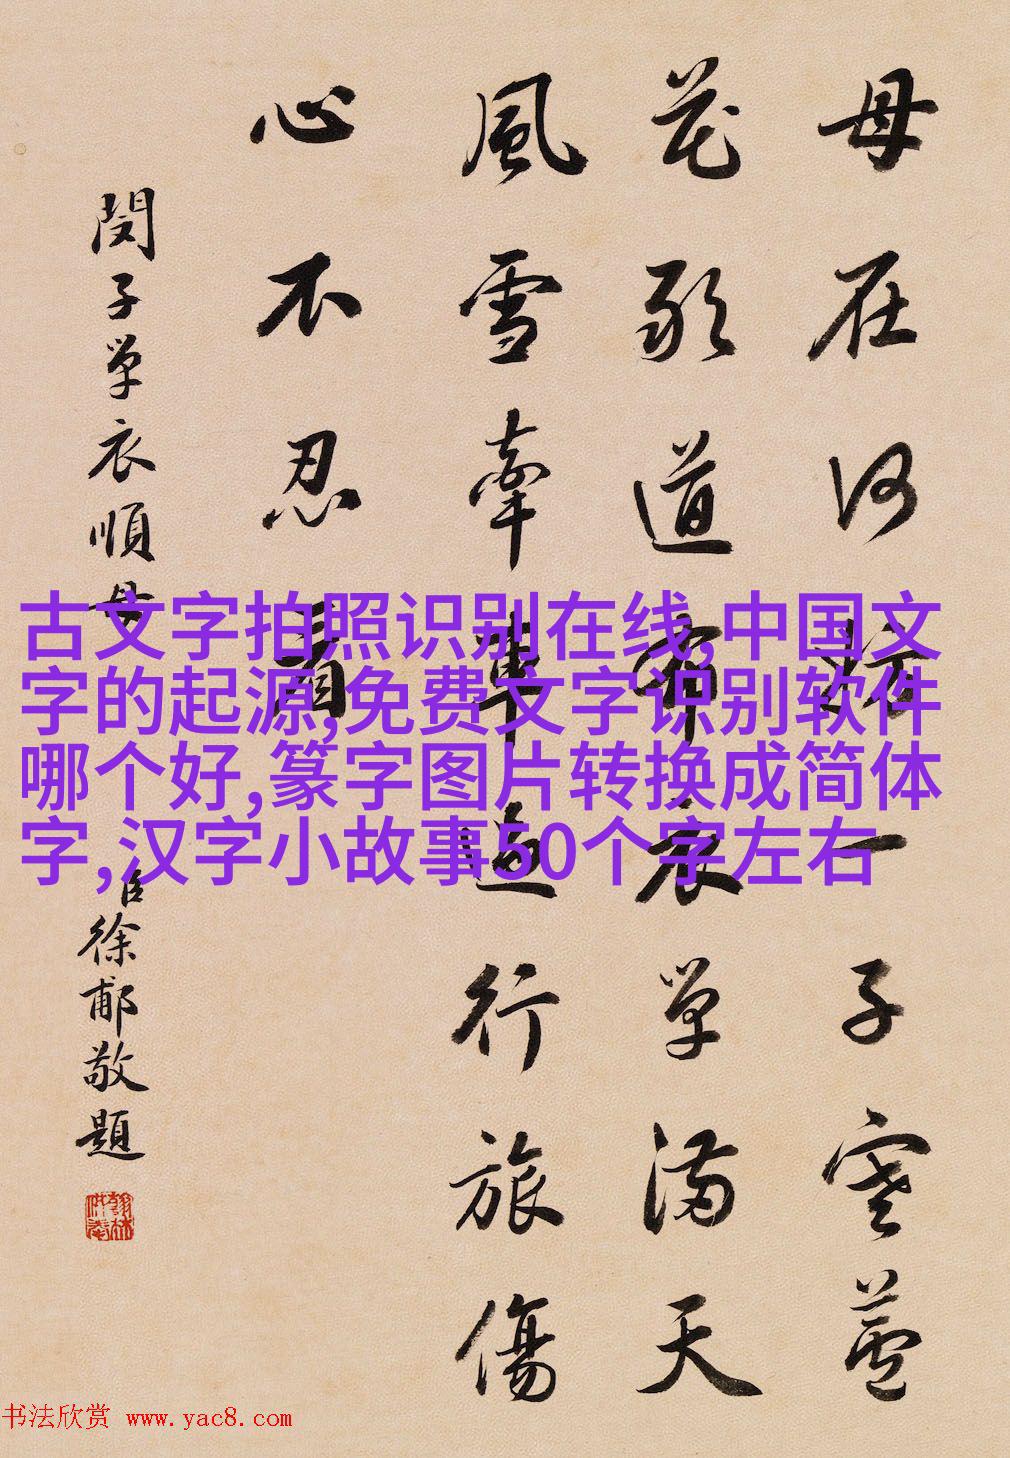 母在何妨一子寒蘆
花敢道布衣單滿天
風雪牽車過行旅傷
心不忍看
閔子單衣順母
臣徐郙敬題
翰林供奉
古文字拍照识别在线,中国文
字的起源,免费文字识别软件
哪个好,篆字图片转换成简体
字,汉字小故事50个字左右
书法欣赏 www.yac8.com